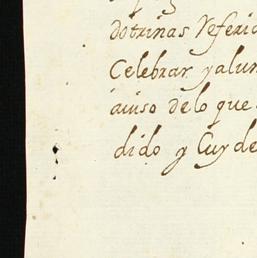 dotrinas referid
Celebrar y alun
auiso de lo que
dido y Cuyde